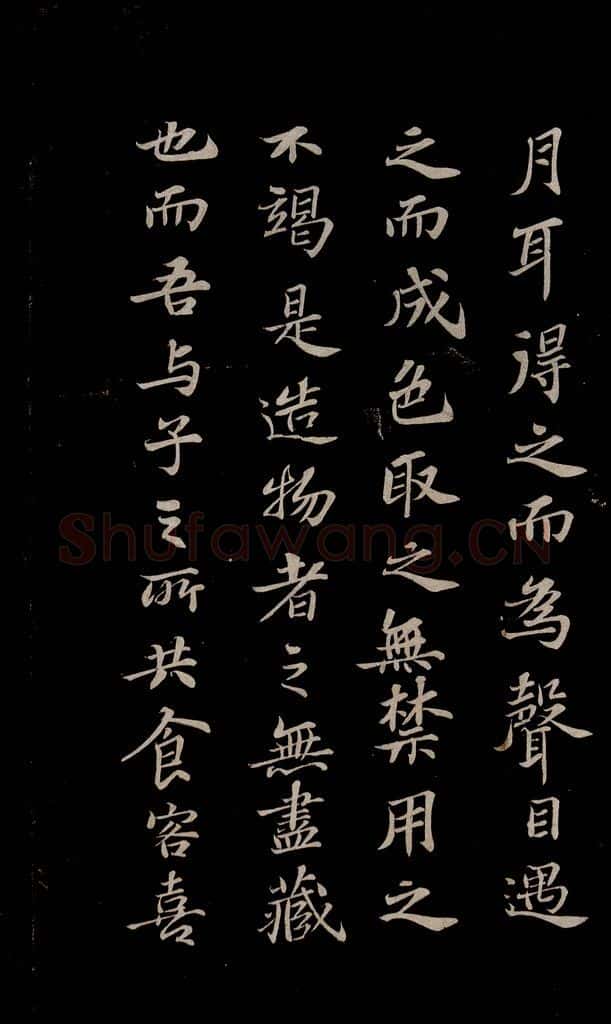 月耳得之而為聲目遇
之而成色取之無禁用之
不竭是造物者之無盡藏
也而吾与子之所共食客喜
Shufawang.CN